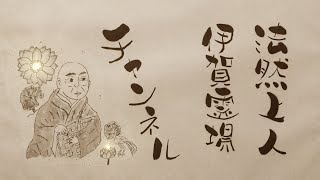 法然上人
伊賀霊場
チャンネル